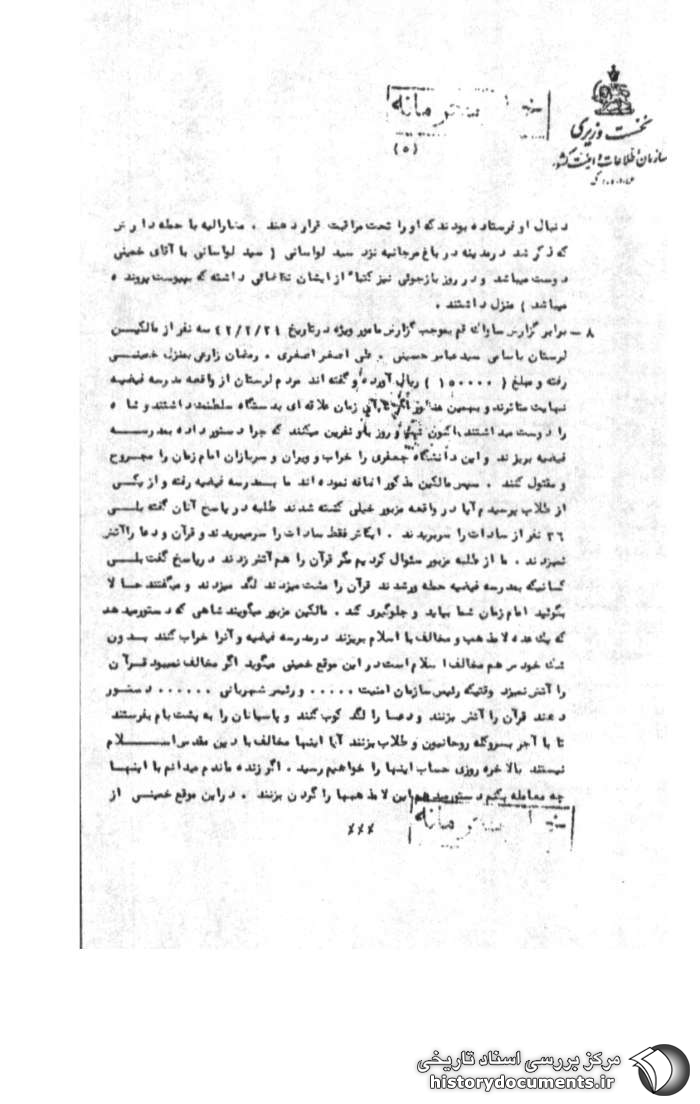 نخست وزیری
سازمان اطلاعات و امنیت کشور
(۵)
دنبال او فرستاده بودند که او را تحت مراقبت قرار دهند . مشارالیه با
که ذکر شد در مدینه در باغ مرجانیه نزد سید لواسانی ( سید لواسانی با آقای خمینی
دوست میباشد و در روز بازجوئی نیز کتباً از ایشان داشته که بپیوست پرونده
میباشد ) منزل داشتند .
۸ – برابر گزارش ساواک قم بموجب گزارش مامور ویژه در تاریخ ۴۲/۲/۲۱ سه نفر از مالکین
لرستان باسامی سید عباس حسینی . علی اصغر اصغری . رمضان زارعی بمنزل خمینی
رفته و مبلغ ( ۱۵۰۰۰۰ ) ریال آورده و گفته اند مردم لرستان از واقعه مدرسه فیضیه
نهایت متاثرند و بهمین زمان علاقه ای بدستگاه سلطنت داشتند و شاه
را دوست میداشتند اکنون و روز باو نفرین میکنند که چرا دستور داده بمدرسه
فیضیه بریزند و این دانشگاه جعفری را خراب و ویران و سربازان امام زمان را مجروح
و مقتول کنند . سپس مالکین مذکور اضافه نموده اند ما بمدرسه فیضیه رفته و از یکی
از طلاب پرسیدم آیا در واقعه مزبور خیلی کشته شدند طلبه در پاسخ آنان گفته بلی
۳۶ نفر از سادات را سربریدند . ایکاش فقط سادات را سرمیبریدند و قرآن و دعا را آتش
نمیزدند . ما از طلبه مزبور سئوال کردیم مگر قرآن را هم آتش زدند در پاسخ گفت بلی
کسانیکه بمدرسه فیضیه حمله ور شدند قرآن را مشت میزدند لگد میزدند و میگفتند حالا
بگوئید امام زمان شما بیاید و جلوگیری کند . مالکین مزبور میگویند شاهی که دستور میدهد
که یک عده لامذهب و مخالف با اسلام بریزند در مدرسه فیضیه و آنرا خراب کنند بدون
شک خودش هم مخالف اسلام است در این موقع خمینی میگوید اگر مخالف نمیبود قرآن
را آتش نمیزد وقتیکه رئیس سازمان امنیت ۰۰۰۰۰ و رئیس شهربانی ۰۰۰۰۰۰ دستور
دهند قرآن را آتش بزنند و دعا را لگد کوب کنند و پاسبانان را به پشت بام بفرستند
تا با آجر بسر و کله روحانیون و طلاب بزنند آیا اینها مخالف با دین مقدس اسلام
نیستند بالاخره روزی حساب اینها را خواهیم رسید . اگر زنده ماندم میدانم با اینها
چه معامله بکنم دستور میدهم این لامذهبها را گردن بزنند . در این موقع خمینی از
×××
مرکز بررسی اسناد تاریخی
historydocuments.ir